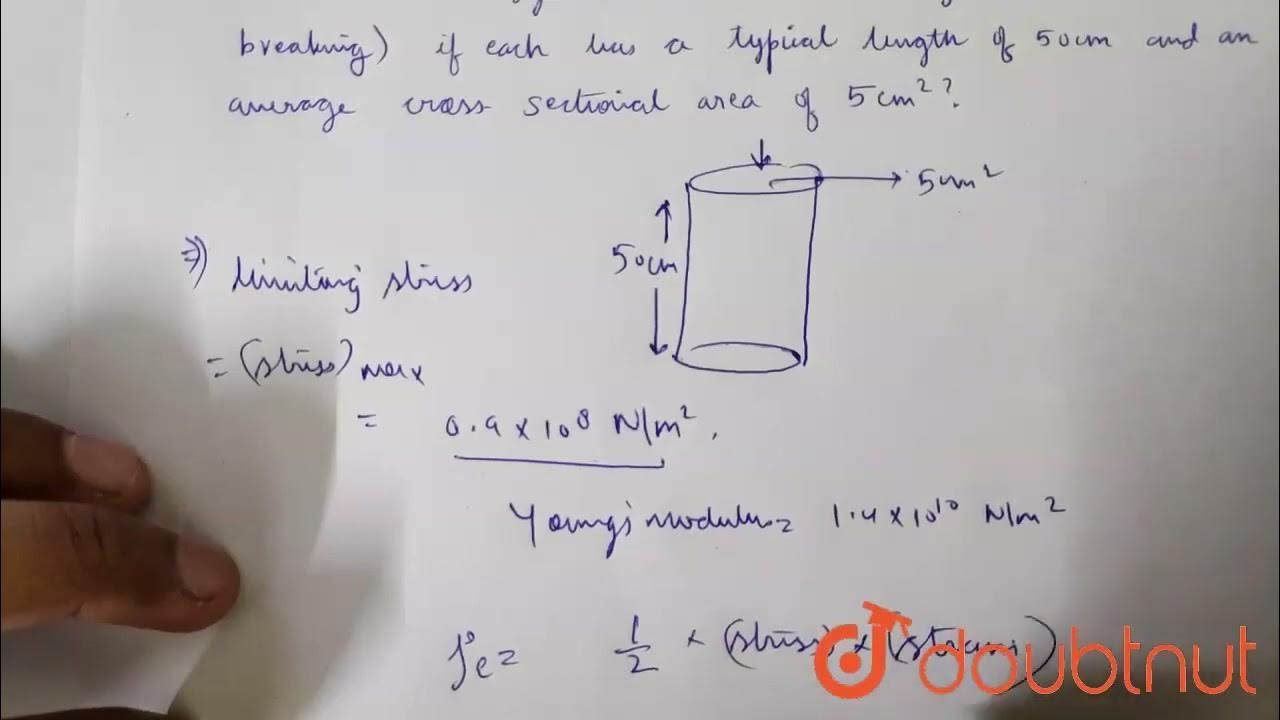 breaking) if each has a typical length of 50cm and an
average cross sectional area of 5cm²?
5cm²
50cm
⇒) limiting stress
= (stress) max
= 0.9 × 10⁸ N/m².
Young's modulus = 1.4 × 10¹⁰ N/m²
= 1/2 × (stress) × (strain)
doubtnut